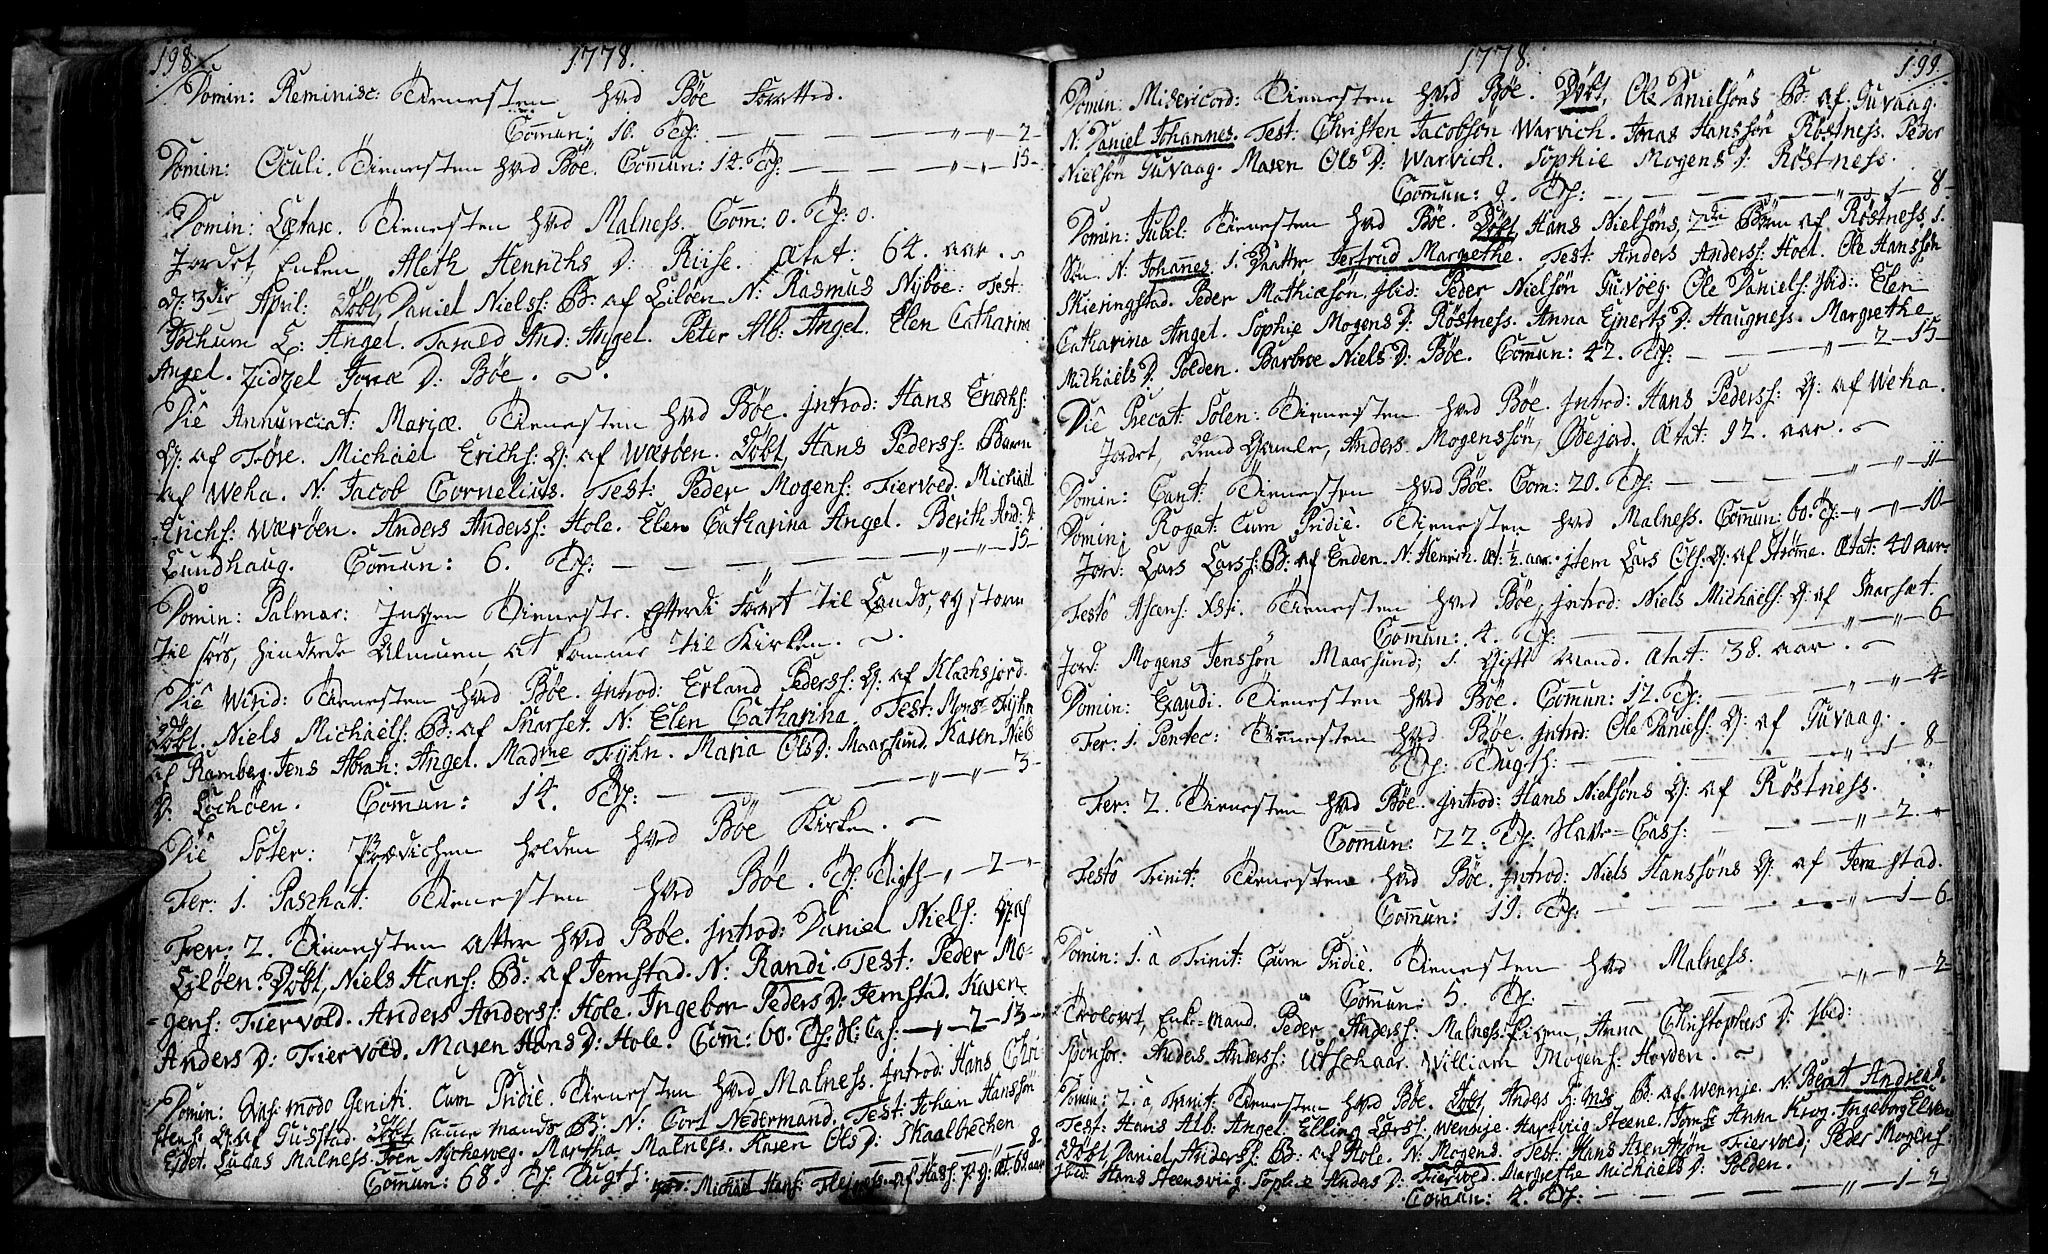 198
1778.
Domin: Reminisc: Tienesten hved Böe Forretted.
Com̅un: 10. Tff: — — — „ — „ — 2 —
Domin: Oculi. Tienesten hved Böe. Com̅un: 14. Tff: — — — „ — „ — 15 —
Domin: Lætare. Tienesten hved Malness. Com̅: 0. Tff: 0.
Jordet, Enken Aleth Henrichs D: Riise. Ætat. 64. aar.
D: 3die April: Döbt, Daniel Nielss: B: af Eilöen N: Rasmus Nyböe. Test:
Jochum E: Angel. Tarald And: Angel. Peter Alb: Angel. Elen Catharina
Angel. Zidzel Jonæ D: Böe.
Die Annunciat: Mariæ. Tienesten hved Böe. Introd: Hans Erichs:
Q: af Tröse. Michael Erichs: Q: af Wæröen. Döbt, Hans Pederss: Barn
af Weha. N: Jacob Cornelius. Test: Peder Mogens: Fiervold. Michael
Erichs: Wæröen. Anders Anderss: Hole. Elen Catharina Angel. Berith And: D:
Lundhaug. Com̅un: 6. Tff: — — — „ — „ — 15 —
Domin: Palmar: Ingen Tieneste. Efterdi Forst til Lands, og storm
til söes, hindrede Almuen at komme til Kirken.
Die Virid: Tienesten hved Böe. Introd: Erland Pederss: Q: af Klachsjord.
Döbt. Niels Michaels: B: af Snarset. N: Elen Catharina. Test: Monsr Fyhn
af Ramberg. Jens Abrah: Angel. Madme Fyhn. Maria Ols D: Maarsund. Karen Niels
D: Lochöen. Com̅un: 14. Tff: — — — „ — „ — 3 —
Die Soter: Prædichen holden hved Böe Kirken.
Fer: 1. Paschat: Tienesten hved Böe. Tff: Dugtl: — „ — 2 — „
Fer: 2. Tienesten atter hved Böe. Introd: Daniel Niels: Q: af
Eilöen. Döbt, Niels Hans: B: af Jemstad. N: Randi. Test: Peder Mo-
gens: Fiervold. Anders Anderss: Hole. Ingebor Peders D: Jemstad. Karen
Anders D: Fiervold. Maren Hans D: Hole. Com̅: 60. Tff: H: Cas: — „ — 2 — 13 —
Domin: Qvasi modo Geniti. Cum Pridie. Tienesten hved Malness. Introd: Hans Chri
stens: Q: af Gustad. Döbt samme Mands B: N: Cort Nedermand. Test: Johan Hanssön
Eidet. Lucas Malness. Iven Nychaveg. Martha Malness. Karen Ols D: Skaalbrechen
Com̅un: 68. Tff: Dugtl: Jord: Michael Hans: 68 aar 8 —
1778.
199
Domin: Misericord: Tienesten hved Böe. Döbt, Ole Danielsöns B: af Guvaag.
N: Daniel Johannes. Test: Christen Jacobsön Warvich. Jonas Hanssön Röstness. Peder
Nielsön Guvaag. Maren Ols D: Warvich. Sophie Mogens D: Röstness.
Com̅un: 9. Tff: — — — „ — 1 — 8 —
Domin: Jubil: Tienesten hved Böe. Döbt, Hans Nielsöns, 2de Börn af Röstness, 1.
Sön N: Johannes. 1. Daatter, Gertrud Margrethe. Test: Anders Anderss: Hoel. Ole Hanssön
Skieringstad. Peder Mathiæsön. Ibid: Peder Nielsön Guvoeg. Ole Daniels: Ibid: Elen
Catharina Angel. Sophie Mogens D: Röstness. Anna Ejnerts D: Haugness. Margrethe
Michaels D: Polden. Barbroe Niels D: Böe. Com̅un: 42. Tff: — — „ — 2 — 15 —
Die Precat: Solen: Tienesten hved Böe. Introd: Hans Pederss: Q: af Weha.
Jordet, Dend Gamle, Anders Mogenssön, Ætat: 92. aar.
Domin: Cant: Tienesten hved Böe. Com: 20. Tff: — — — „ — „ — 11 —
Domin: Rogat: Cum Pridie. Tienesten hved Malness. Com̅un: 60. Tff: — „ — „ — 10 —
Jord: Lars Larss: B: af Enden. N: Henrich. æt: ½. aar. item Lars Ols: Q: af Ströme. Ætat: 40 aar.
Festo Ascens: Xsti. Tienesten hved Böe, Introd: Niels Michaels: Q: af Snarset.
Com̅un: 4. Tff: — — — „ — „ — 6
Jord: Mogens Jenssön Maarsund; 1. Gift Mand. Ætat: 38. aar.
Domin: Exaudi. Tienesten hved Böe. Com̅un: 12. Tff: — — „ — „ — 4 —
Fer: 1. Pentec: Tienesten hved Böe. Introd: Ole Daniels: Q: af Guvaag.
Tff: Dugtl: — — — „ — 1 — 8 —
Fer: 2. Tienesten hved Böe. Introd: Hans Nielsöns Q: af Röstness.
Com̅un: 22. Tff: Have-Cass: — — „ — 2 — „
Festo Trinit: Tienesten hved Böe. Introd: Niels Hanssöns Q: af Jemstad.
Com̅un: 19. Tff: — — — „ — 1 — 6
Domin: 1. à Trinit: Cum Pridie. Tienesten hved Malness.
Com̅un: 5. Tff: — — — „ — „ — 2
Trolovt, Enke-Mand. Peder Anderss: Malness Pigen, Anna Christophers D: Ibid:
Sponsor: Anders Anderss: Utschaar. William Mogens: Hovden.
Domin: 2. à Trinit: Tienesten hved Böe. Döbt, Anders B: af Wennje. N: Berat Andreas.
Test: Hans Alb: Angel. Elling Larss: Wennje. Hartvig Steene. Jomfr Anna Krog. Ingeborg Elven
Döbt, Daniel Anderss: B: af Hole. N: Mogens. Test: Hans Fiervold; Peder Mogens:
Ibid: Hans Steensviig. Sophie Andas D: Fiervold. Margrethe Michaels D: Polden.
Com̅un: 2. Tff: — — — „ — 1 — 2